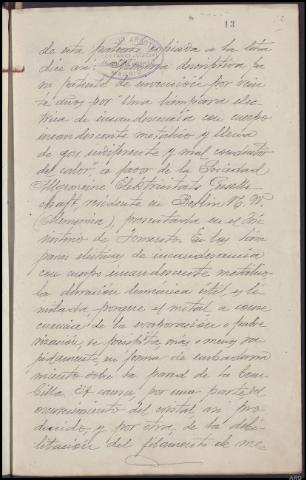 13
de esta patente copiada a la letra
dice así: Memoria descriptiva de
una patente de invención por vein
te años por "Una lámpara eléc
trica de incandescencia con cuerpo
incandescente metálico y llena
de gas indiferente y mal conductor
del calor", a favor de la Sociedad
Allgemeine Elektricitäts Gesells-
chaft, residente en Berlin N. W.
(Alemania), presentada en el Mi
nisterio de Fomento. En las lám
paras eléctricas de incandescencia
con cuerpo incandescente metálico
la duración lumínica útil es li
mitada porque el metal a conse
cuencia de la evaporación o pulve
rización, se precipita más o menos ra
pidamente en forma de
miento sobre la pared de la bom
billa. Es causa, por una parte del
oscurecimiento del cristal así pro
ducido, y por otra, de la debi-
litación del filamento de me-